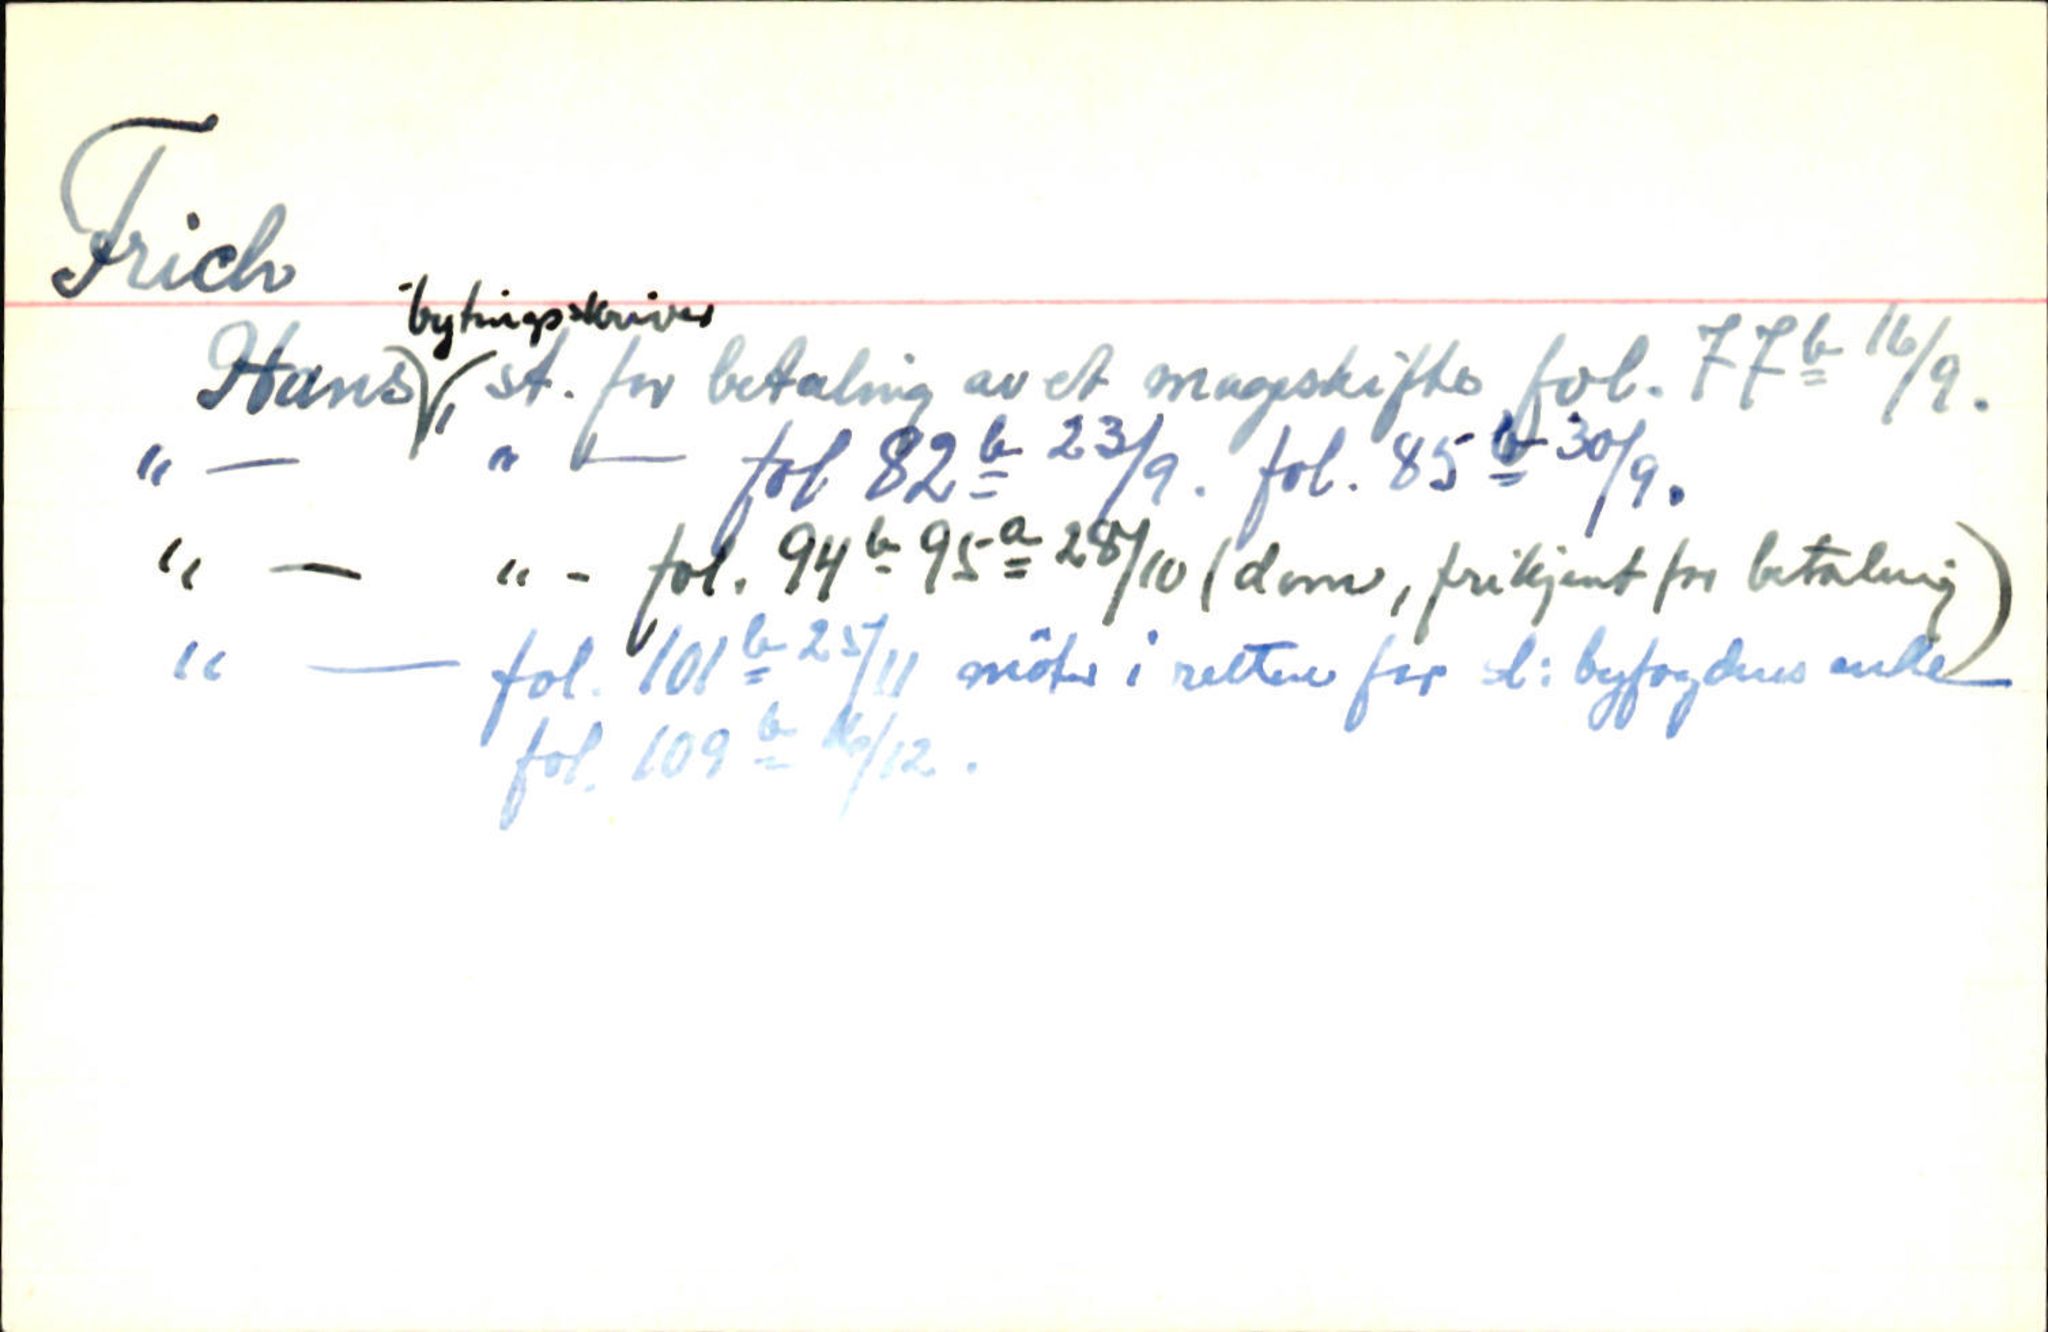 Frich
bytingsskriver
Hans, st. for betaling av et mageskifte fol. 77b 16/9.
" — " — fol 82b 23/9. fol. 85b 30/9.
" — " - fol. 94b 95a 28/10 (dom, frikjent for betaling)
" — fol. 101b 25/11 möter i retten for sl: byfogdens enke
fol. 109b 16/12.